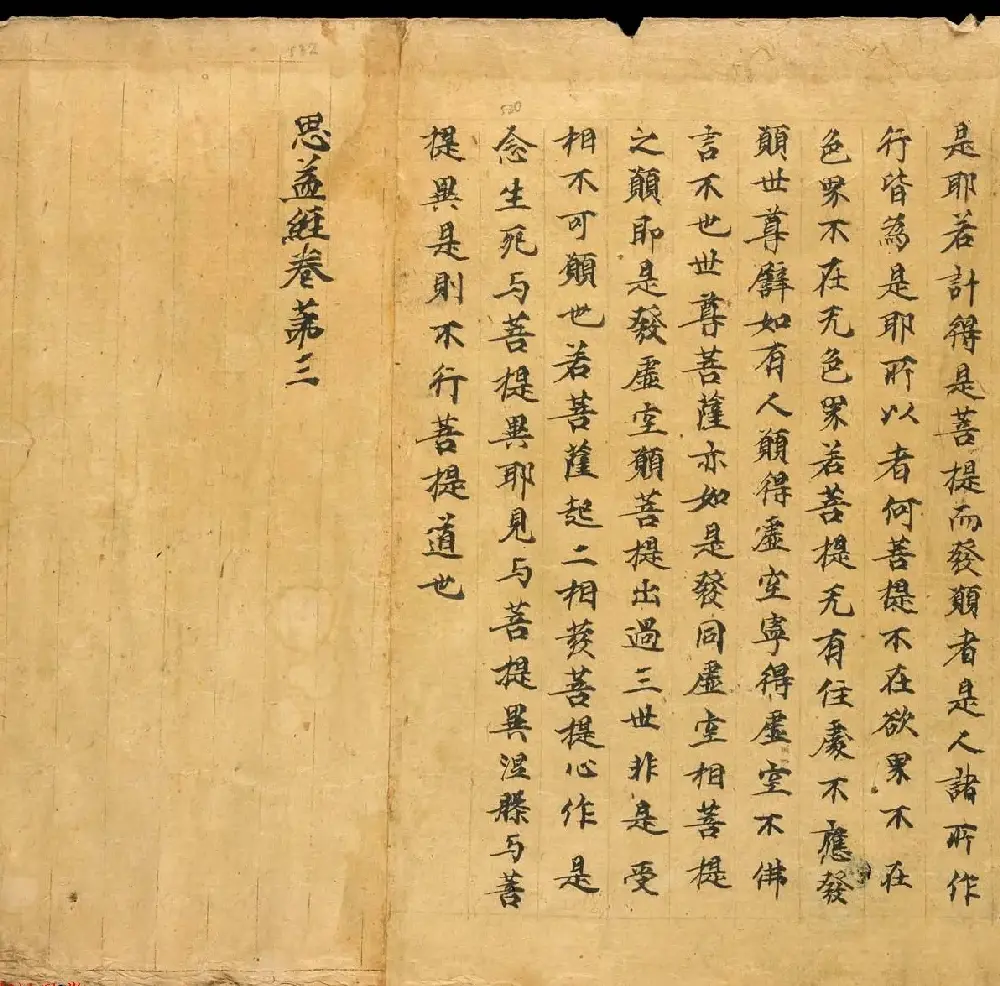 是耶若計得是菩提而發願者是人諸所作
行皆為是耶所以者何菩提不在欲界不在
色界不在无色界若菩提无有住處不應發
願世尊譬如有人願得虛空寧得虛空不佛
言不也世尊菩薩亦如是發同虛空相菩提
之願即是發虛空願菩提出過三世非是受
相不可願也若菩薩起二相發菩提心作是
念生死与菩提異耶見与菩提異涅槃与菩
提異是則不行菩提道也
思益經卷第三
530
532